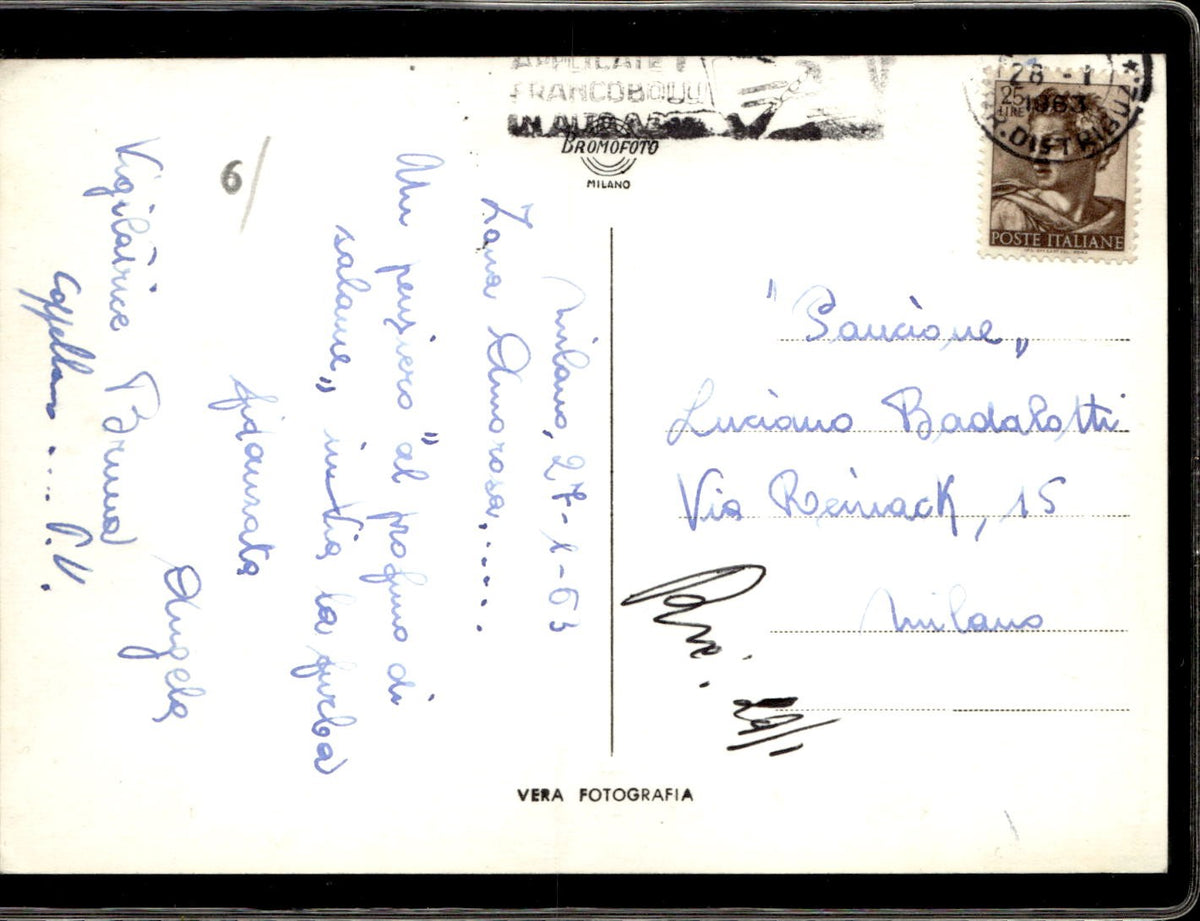 APPLICATE I
FRANCOBOLLI
IN ALTO A
BROMOFOTO
MILANO
28 - 1
1963
DISTRIBUZ.
25
LIRE
POSTE ITALIANE
Milano, 27-1-63
Zana Amorosa.....
Un pensiero "al profumo di
salame„ invia la furba
fidanzata
Angela
Vigilatrice Bruna
"Pancione„
Luciano Badalotti
Via Reinack, 15
Milano
29/1
VERA FOTOGRAFIA
6/